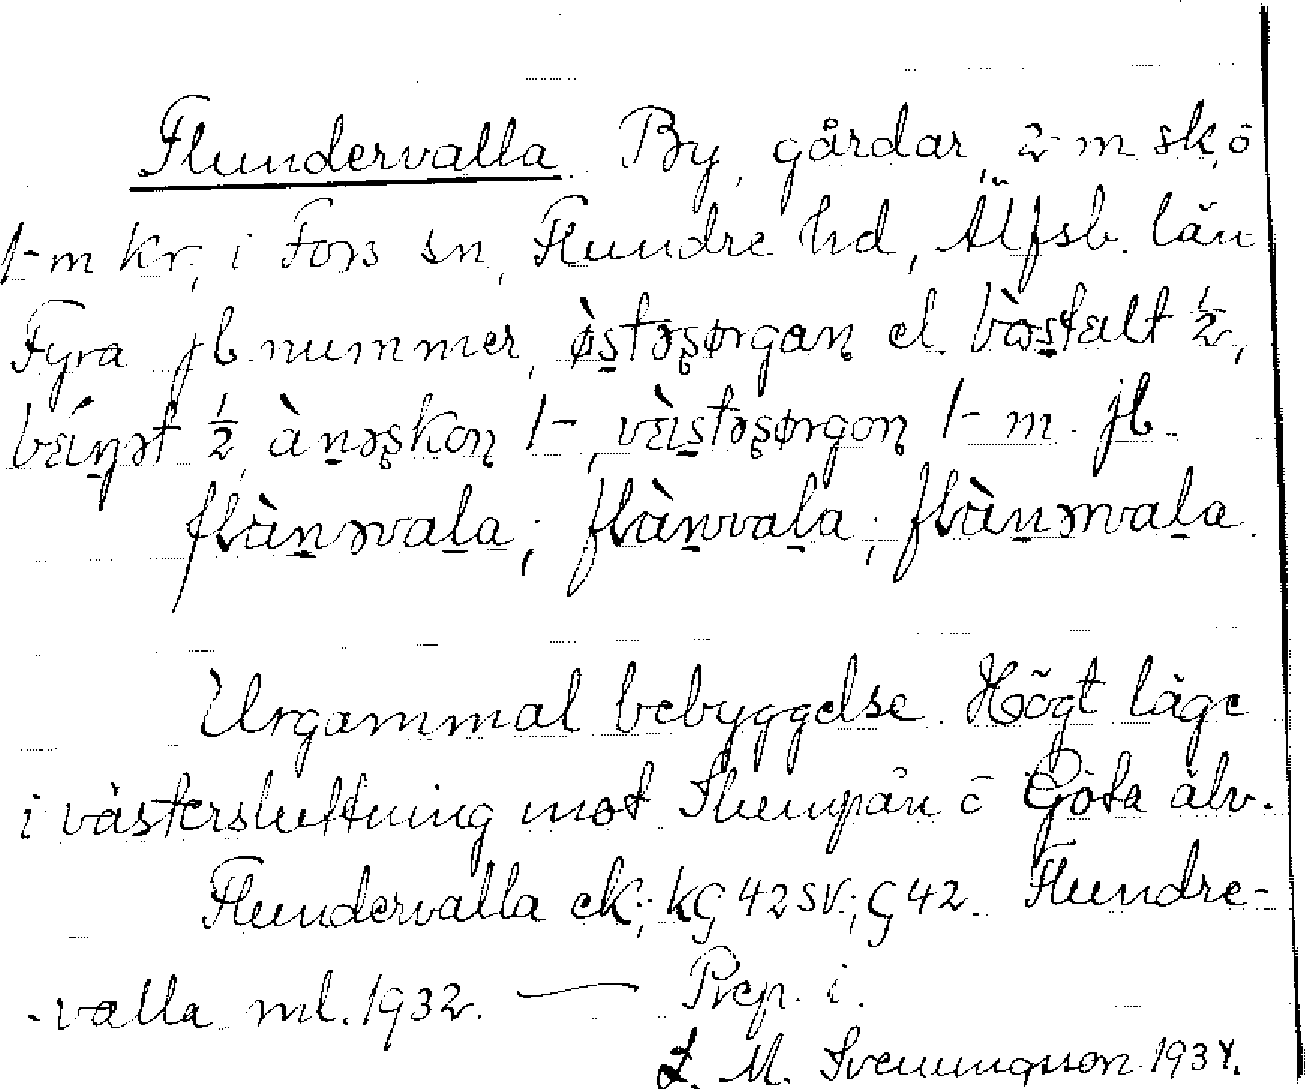 Flundervalla. By, gårdar, 2-m sk, o
1-m kr, i Fors sn, Flundre hd, Älfsb. län
Fyra jb nummer, østəʂørgaɳ el. bəstalt ½,
½, ànəʂkoɳ 1-, 1- m. jb.
flànəvala; flànvala; flànərvala.
Urgammal bebyggelse. Högt läge
i västersluttning mot Slumpån o Göta älv.
Flundervalla ek; kG 42 SV; G 42. Flundre-
-valla ml. 1932. — Prep. i.
L. M. Svenungsson 1934.